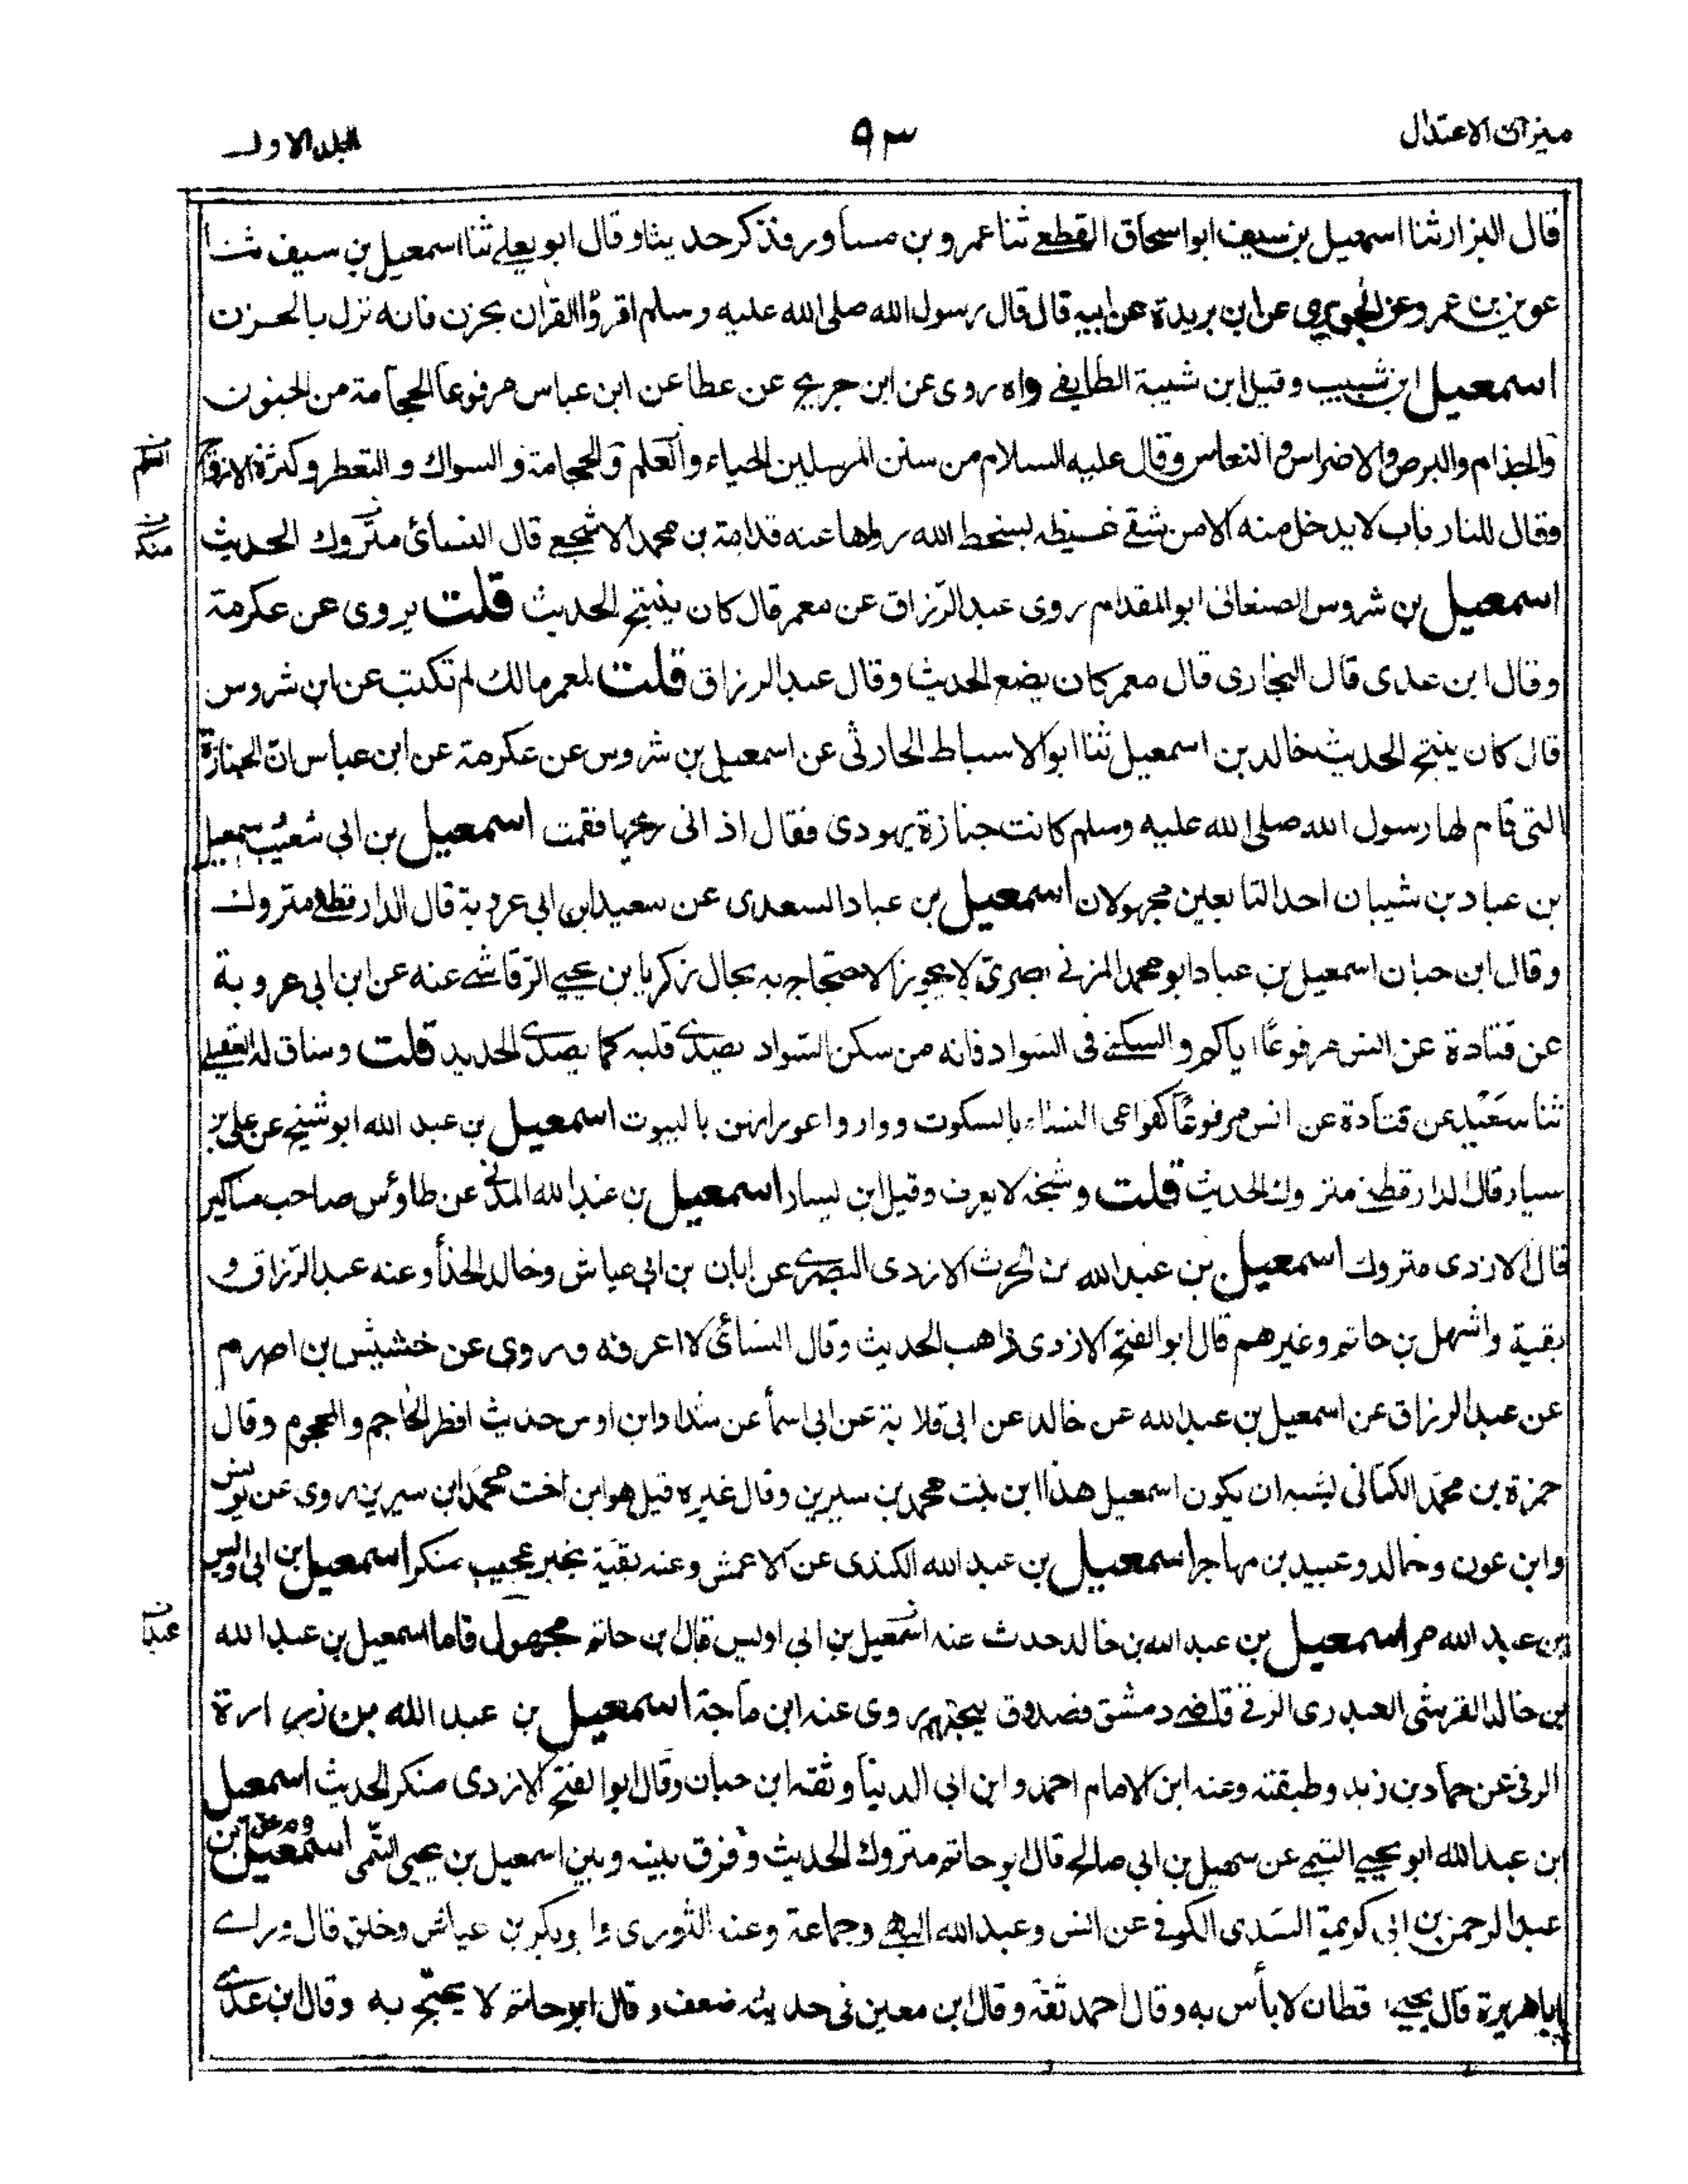 ميزان الاعتدال
٩٣
الجلد الاول
قال البزار ثنا اسمعيل بن سيف ابو اسحاق القطعے ثنا عمرو بن مساور فذكر حديثا وقال ابو يعلے ثنا اسمعيل بن سيف ثنا
عوين بن عمرو عن الجريرى عن ابن بريدة عن ابيه قال قال رسول الله صلى الله عليه وسلم اقرؤا القران بحزن فانه نزل بالحزن
اسمعيل ابن شبيب وقيل ابن شيبة الطايفے واه روى عن ابن جريج عن عطا عن ابن عباس مرفوعا الحجامة من الجنون
والجذام والبرص والاضراس والنعاس وقال عليه السلام من سنن المرسلين الحياء والعلم والحجامة والسواك والتعطر وكثرة الازواج
وقال للنار باب لا يدخل منه الا من شفے غيظه بسخط الله رواها عنه قدامة بن محمد الاشجعے قال النسائ متروك الحديث
منكر
اسمعيل بن شروس الصنعانى ابو المقدام روى عبد الرزاق عن معمر قال كان يثبج الحديث قلت يروى عن عكرمة
وقال ابن عدى قال البخارى قال معمر كان يضع الحديث وقال عبد الرزاق قلت لمعمر مالك لم تكتب عن ابن شروس
قال كان يثبج الحديث خالد بن اسمعيل ثنا ابو الاسباط الحارثى عن اسمعيل بن شروس عن عكرمة عن ابن عباس ان الجنازة
التى قام لها رسول الله صلى الله عليه وسلم كانت جنازة يهودى فقال اذانى ريحها فقمت اسمعيل بن ابى شعيب اسمعيل
بن عباد بن شيبان احد التابعين مجهولان اسمعيل بن عباد السعدى عن سعيد ابن ابى عروبة قال الدارقطنے متروك
وقال ابن حبان اسمعيل بن عباد ابو محمد المزنے بصرى لا يجوز الاحتجاج به بحال زكريا بن يحيے الرقاشے عنه عن ابن ابى عروبة
عن قتادة عن انس مرفوعا اياكم والسكنے فى السواد فانه من سكن السواد يصدے قلبه كما يصدے الحديد قلت وساق له العقيلے
ثنا سعيد عن قتادة عن انس مرفوعا كفوا عى النساء بالسكوت وواروا عوراتهن بالبيوت اسمعيل بن عبد الله ابو شيخ عن على بن
سيار قال الدارقطنے متروك الحديث قلت وشيخه لا يعرف وقيل ابن يسار اسمعيل بن عبد الله المدنى عن طاؤس صاحب مناكير
قال الازدى متروك اسمعيل بن عبد الله بن الحرث الازدى البصرے عن ابان بن ابى عياش وخالد الحذأ وعنه عبد الرزاق و
بقية واشهل بن حاتم وغيرهم قال ابو الفتح الازدى ذاهب الحديث وقال النسائى لا اعرفه وروى عن خشيش بن اصرم
عن عبد الرزاق عن اسمعيل بن عبد الله عن خالد عن ابى قلابة عن ابى اسمأ عن شداد ابن اوس حديث افطر الحاجم والمحجوم وقال
حمزة بن محمد الكنانى يشبه ان يكون اسمعيل هذا ابن بنت محمد بن سيرين وقال غيره قيل هو ابن اخت محمد ابن سيرين روى عن يونس
وابن عون وخالد وعبيد بن مهاجر اسمعيل بن عبد الله الكندى عن الاعمش وعنه بقية بخبر عجيب منكر اسمعيل بن ابى اويس
بن عبد الله مر اسمعيل بن عبد الله بن خالد حدث عنه اسمعيل بن ابى اويس قال بن حاتم مجهول فاما اسمعيل بن عبد الله
بن خالد القرشى العبدرى الرقے قاضے دمشق فصدوق يتجهم روى عنه ابن ماجة اسمعيل بن عبد الله بن زرارة
الرقى عن حماد بن زيد وطبقته وعنه ابن الامام احمد وابن ابى الدنيا وثقه ابن حبان وقال ابو الفتح الازدى منكر الحديث اسمعيل
بن عبد الله ابو يحيے التيمے عن سهيل بن ابى صالح قال ابو حاتم متروك الحديث وفرق بينه وبين اسمعيل بن يحيى التيمى اسمعيل بن
عبد الرحمن بن ابى كريمة السدى الكوفے عن انس وعبد الله البهے وجماعة وعنه الثورى وابو بكر بن عياش وخلق قال وراے
اباهريرة قال يحيے قطان لا بأس به وقال احمد ثقة وقال ابن معين فى حديثه ضعف وقال ابو حاتم لا يحتج به وقال ابن عدے